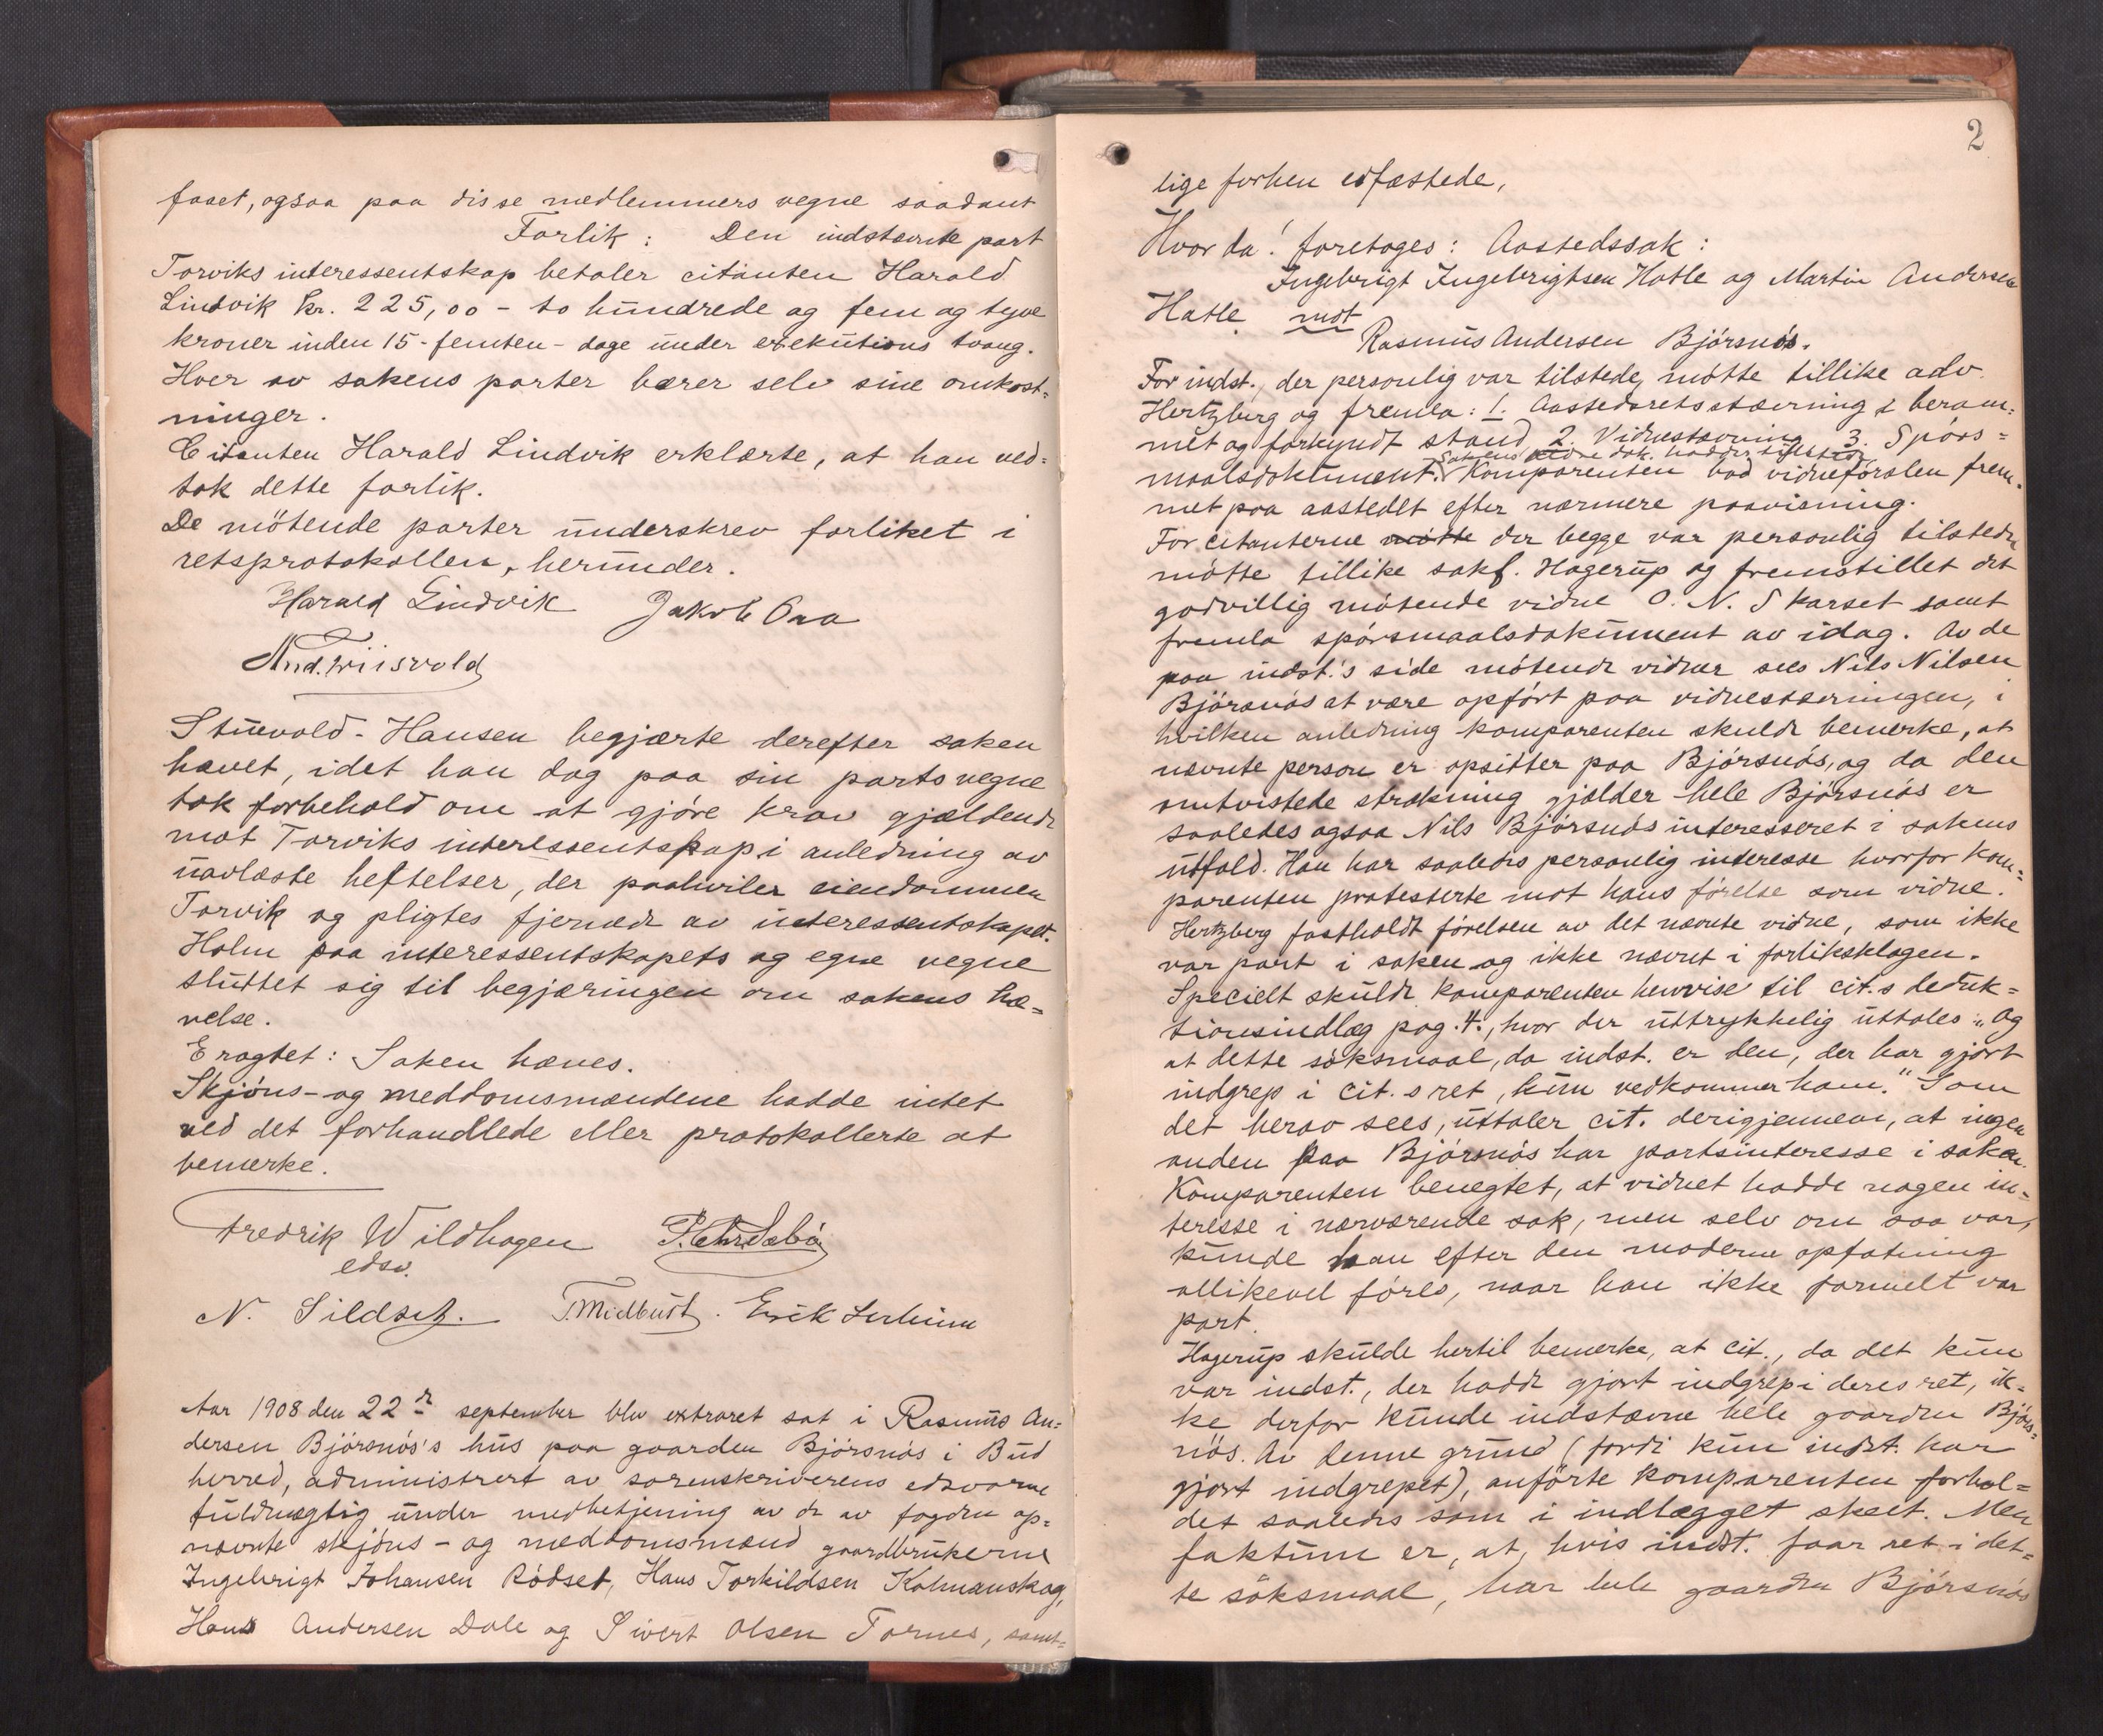 faset, ogsaa paa disse medlemmers vegne saadant
Forlik: Den indstævnte part
Torviks interessentskap betaler citanten Harald
Lindvik kr. 225,00 - to hundrede og fem og tyve
kroner inden 15 - femten - dage under exekutions tvang.
Hver av sakens parter bærer selv sine omkost=
ninger.
Citanten Harald Lindvik erklærte, at han ved=
tok dette forlik.
De mötende parter underskrev forliket i
retsprotokollen, herunder.
Harald Lindvik Jakob Oaa
And.
Stuevold-Hansen begjærte derefter saken
hævet, idet han dog paa sin parts vegne
tok forbehold om at gjöre krav gjældende
mot Torviks interessentskap i anledning av
uavlæste heftelser, der paahviler eiendommen
Torvik og pligtes fjernede av interessentskapet.
Holm paa interessentskapets og egne vegne
sluttet sig til begjæringen om sakens hæ=
velse.
Eragtet: Saken hæves.
Skjöns- og meddomsmændene hadde intet
ved det forhandlede eller protokollerte at
bemerke.
Fredrik Wildhagen
edsv.
N. Sildset. T. Midbust. Erik
Aar 1908 den 22de september blev extraret sat i Rasmus An=
dersen Björsnös's hus paa gaarden Björsnös i Bud
herred, administrert av sorenskriverens edsvorne
fuldmægtig under medbetjening av de av fogden op=
nævnte skjöns- og meddomsmænd gaardbrukerne
Ingebrigt Johansen Rödset, Hans Torkildsen Kolmanskog,
Hans Andersen Dale og Sivert Olsen Tornes, samt=
2
lige forhen edfæstede,
Hvor da! foretoges: Aastedssak:
Ingebrigt Ingebrigtsen Hatle og Martin Andersen
Hatle mot
Rasmus Andersen Björsnös.
For indst., der personlig var tilstede, mötte tillike adv.
Hertzberg og fremla: 1. Aastedsretsstævning i beram=
met og forkyndt stand 2. Vidnestævning 3. Spörs=
Sakens ældre dok. hadde tilstede
maalsdokument. Komparenten bad vidneförslen frem=
met paa aastedet efter nærmere paavisning.
For citanterne mötte der begge var personlig tilstede
mötte tillike sakf. Hagerup og fremstillet det
godvillig mötende vidne O. N. Skarset samt
fremla spörsmaalsdokument av idag. Av de
paa indst.'s side mötende vidner sees Nils Nilsen
Björsnös at være opfört paa vidnestævningen, i
hvilken anledning komparenten skulde bemerke, at
nævnte person er opsitter paa Björsnös, og da den
omtvistede strækning gjælder hele Björsnös er
saaledes ogsaa Nils Björsnös interesseret i sakens
utfald. Han har saaledes personlig interesse hvorfor kom=
parenten protesterte mot hans förelse som vidne.
Hertzberg fastholdt förelsen av det nævnte vidne, som ikke
var part i saken og ikke nævnt i forliksklagen.
Specielt skulde komparenten henvise til cit.s deduk=
tionsindlæg pag. 4., hvor der uttrykkelig uttales: „Og
at dette söksmaal, da indst. er den, der har gjort
indgrep i cit.s ret, kun vedkommer ham." Som
det herav sees, uttaler cit. derigjennem, at ingen
anden paa Björsnös har partsinteresse i saken.
Komparenten benegtet, at vidnet hadde nogen in=
teresse i nærværende sak, men selv om saa var,
kunde han efter den moderne opfatning
allikevel föres, naar han ikke formelt var
part.
Hagerup skulde hertil bemerke, at cit., da det kun
var indst., der hadde gjort indgrep i deres ret, ik=
ke derfor kunde indstævne hele gaarden Björs=
nös. Av denne grund (fordi kun indst. har
gjort indgrepet), anförte komparenten forhol=
det saaledes som i indlægget skeet. Men
faktum er, at, hvis indst. faar ret i det=
te söksmaal, har hele gaarden Björsnös